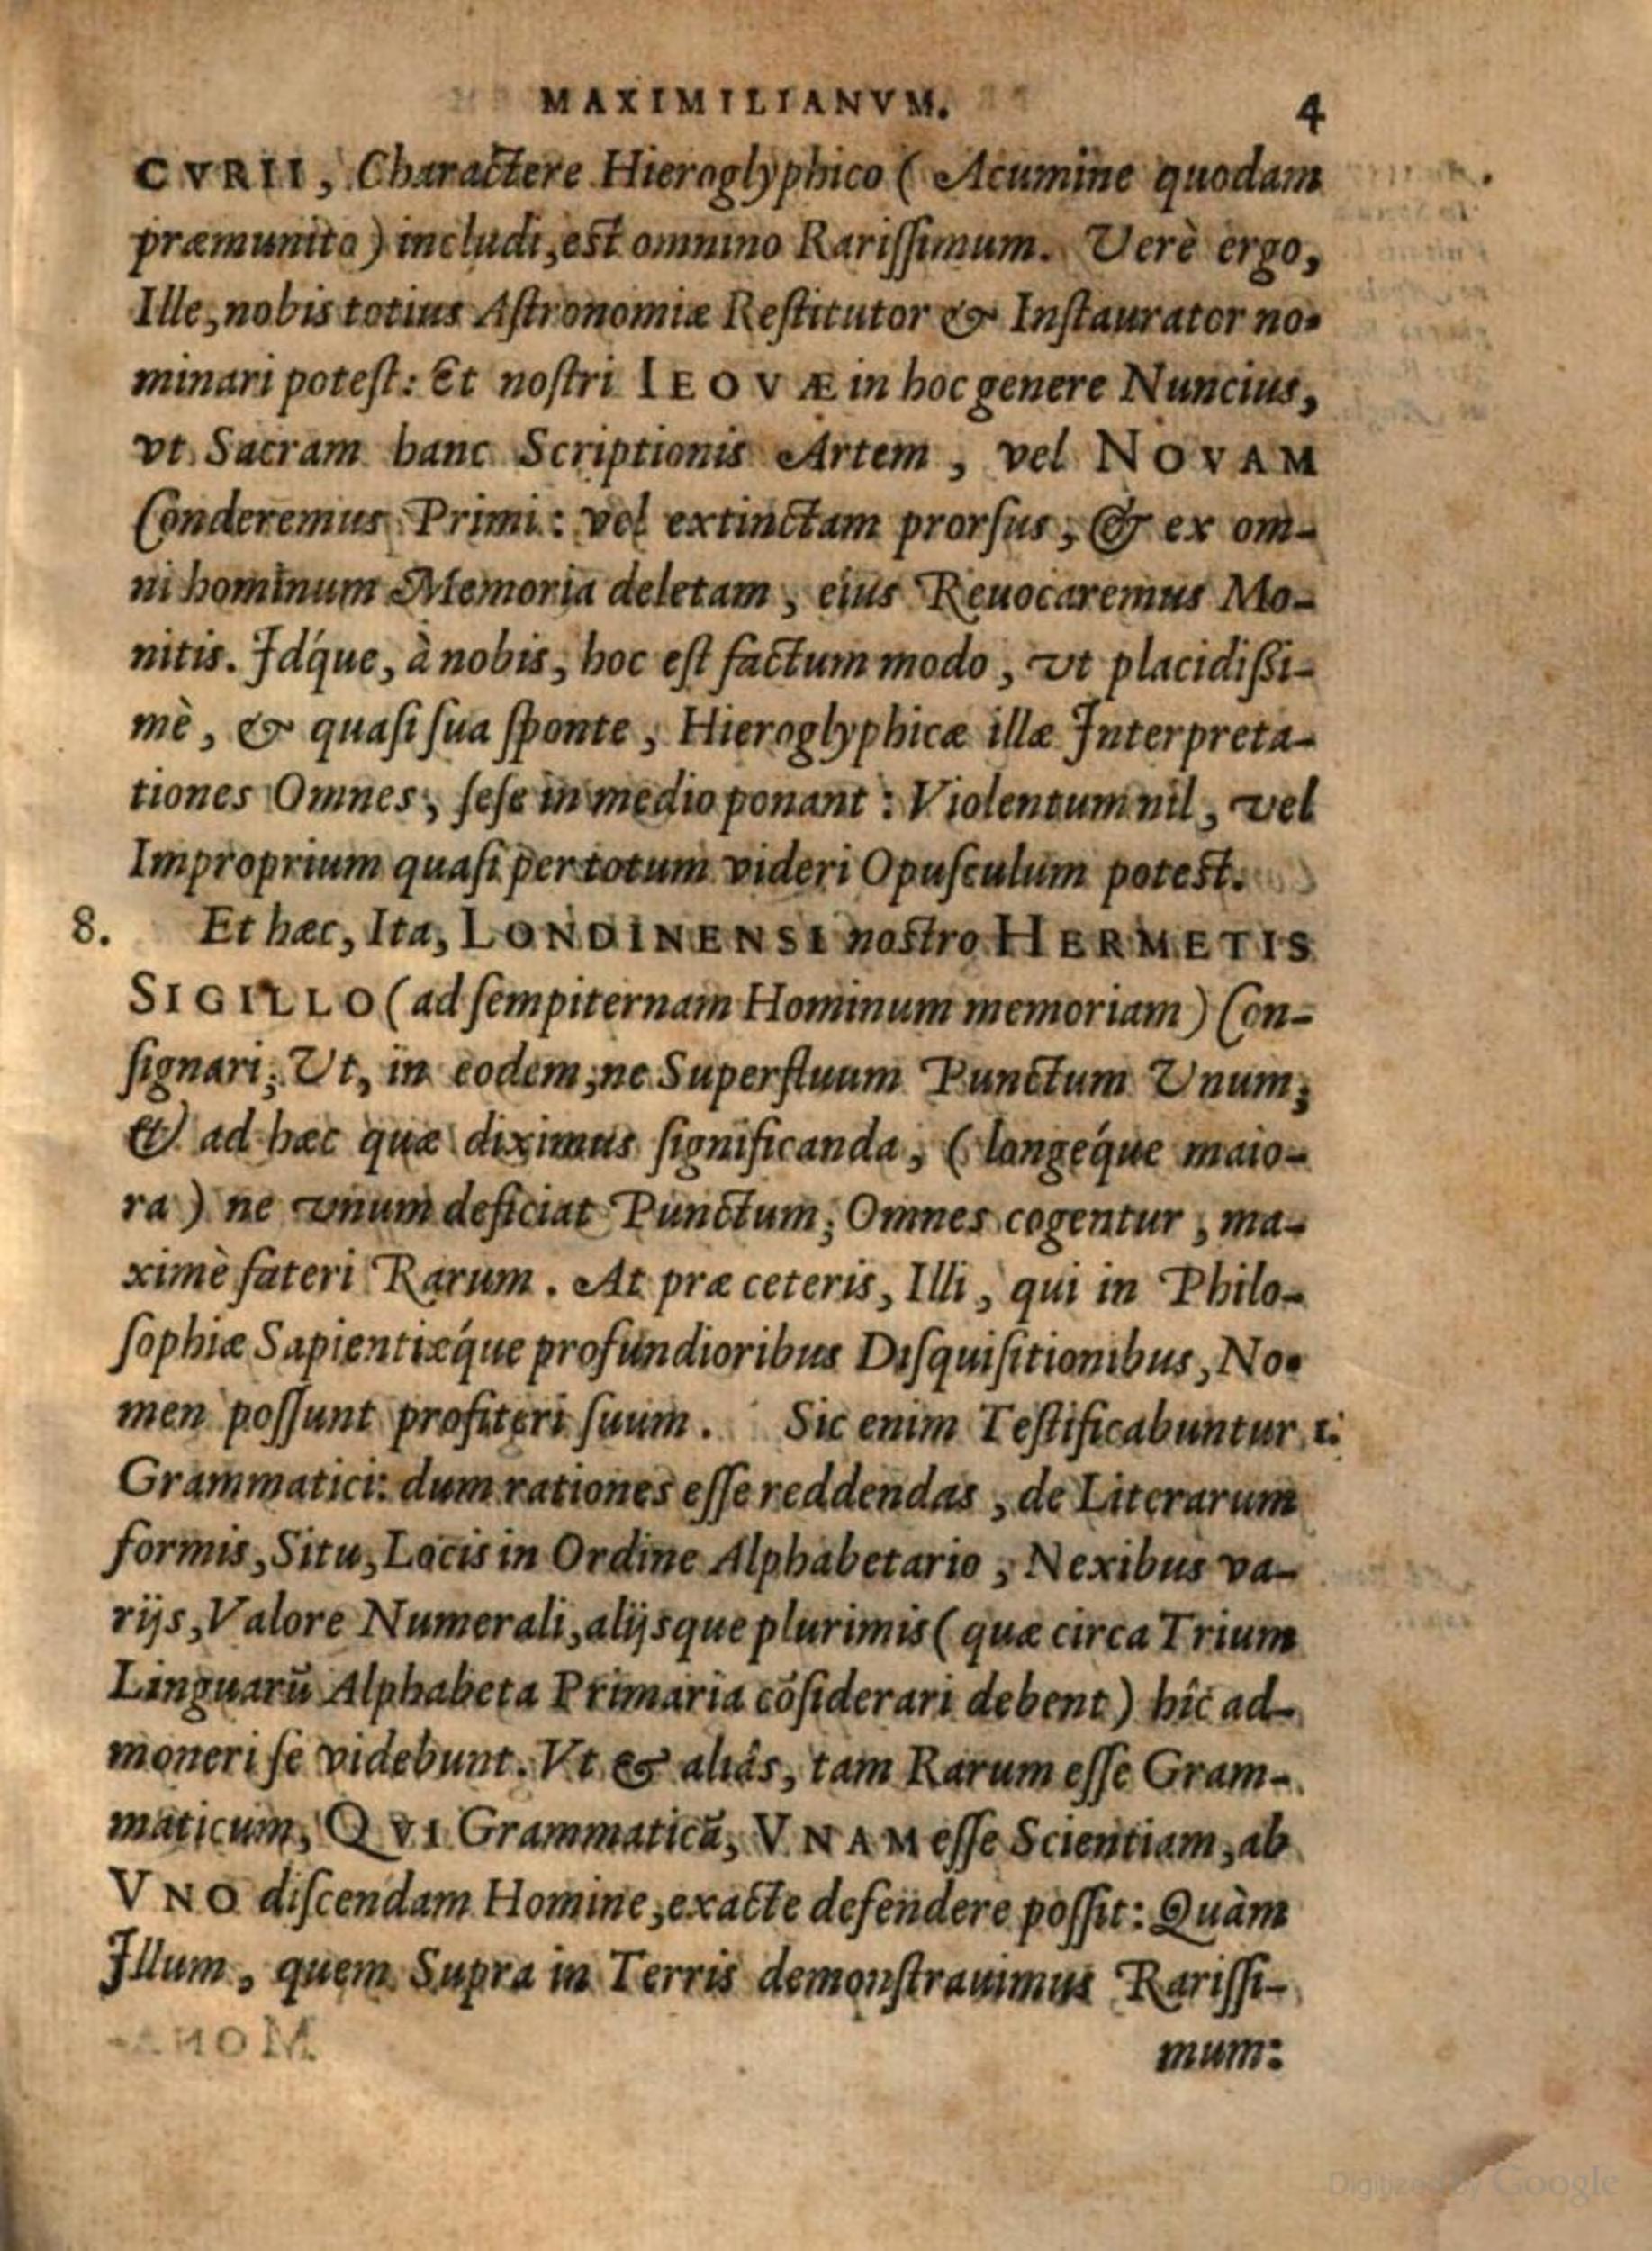 MAXIMILIANVM. 4
CVRII, Charactere Hieroglyphico (Acumine quodam
præmunito) includi, est omnino Rarissimum. Verè ergo,
Ille, nobis totius Astronomiæ Restitutor & Instaurator no-
minari potest: Et nostri IEOVÆ in hoc genere Nuncius,
vt Sacram hanc Scriptionis Artem, vel NOVAM
Conderemus Primi: vel extinctam prorsus, & ex om-
ni hominum Memoria deletam, eius Reuocaremus Mo-
nitis. Idq́ue, à nobis, hoc est factum modo, vt placidissi-
mè, & quasi sua sponte, Hieroglyphicæ illæ Interpreta-
tiones Omnes, sese in medio ponant: Violentum nil, vel
Improprium quasi per totum videri Opusculum potest.
8. Et hæc, Ita, LONDINENSI nostro HERMETIS
SIGILLO (ad sempiternam Hominum memoriam) Con-
signari; Ut, in eodem, ne Superfluum Punctum Unum;
& ad hæc quæ diximus significanda, (longeq́ue maio-
ra) ne vnum deficiat Punctum; Omnes cogentur, ma-
ximè fateri Rarum. At præ ceteris, Illi, qui in Philo-
sophiæ Sapientiæq́ue profundioribus Disquisitionibus, No-
men possunt profiteri suum. Sic enim Testificabuntur 1.
Grammatici: dum rationes esse reddendas, de Literarum
formis, Situ, Locis in Ordine Alphabetario, Nexibus va-
rijs, Valore Numerali, alijsque plurimis (quæ circa Trium
Linguarũ Alphabeta Primaria cõsiderari debent) hîc ad-
moneri se videbunt. Vt & aliâs, tam Rarum esse Gram-
maticum, QVI Grammaticã, VNAM esse Scientiam, ab
VNO discendam Homine, exacte defendere possit: Quàm
Illum, quem Supra in Terris demonstrauimus Rarissi-
mum:
Digitized by Google